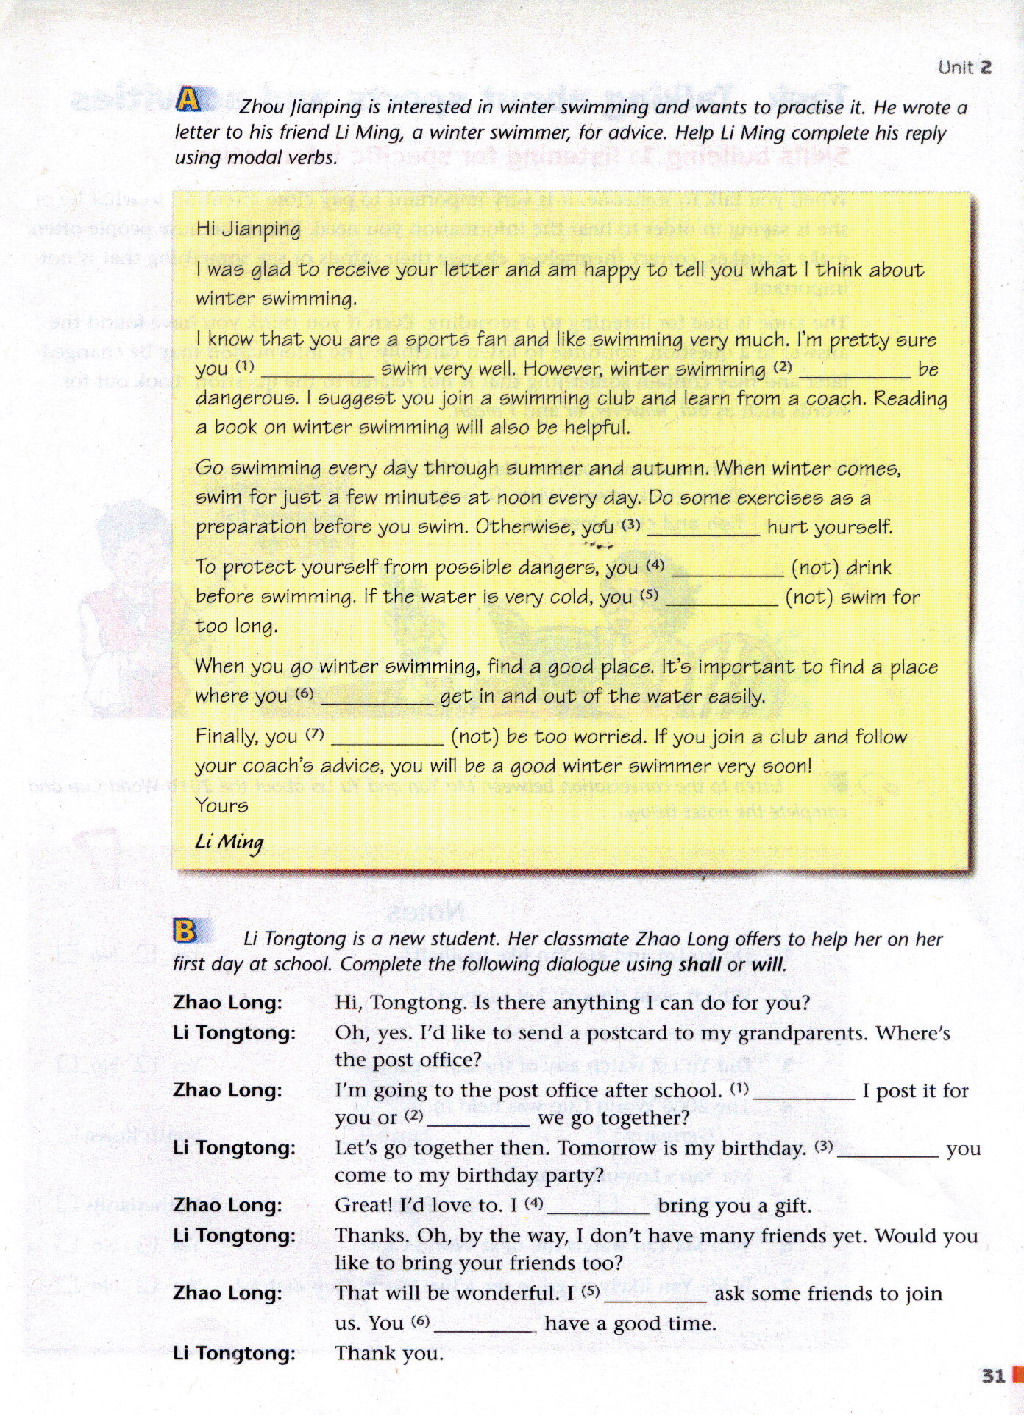 Unit 2
A Zhou Jianping is interested in winter swimming and wants to practise it. He wrote a
letter to his friend Li Ming, a winter swimmer, for advice. Help Li Ming complete his reply
using modal verbs.
Hi Jianping
I was glad to receive your letter and am happy to tell you what I think about
winter swimming.
I know that you are a sports fan and like swimming very much. I'm pretty sure
you (1) __________ swim very well. However, winter swimming (2) __________ be
dangerous. I suggest you join a swimming club and learn from a coach. Reading
a book on winter swimming will also be helpful.
Go swimming every day through summer and autumn. When winter comes,
swim for just a few minutes at noon every day. Do some exercises as a
preparation before you swim. Otherwise, you (3) __________ hurt yourself.
To protect yourself from possible dangers, you (4) __________ (not) drink
before swimming. If the water is very cold, you (5) __________ (not) swim for
too long.
When you go winter swimming, find a good place. It's important to find a place
where you (6) __________ get in and out of the water easily.
Finally, you (7) __________ (not) be too worried. If you join a club and follow
your coach's advice, you will be a good winter swimmer very soon!
Yours
Li Ming
B Li Tongtong is a new student. Her classmate Zhao Long offers to help her on her
first day at school. Complete the following dialogue using shall or will.
Zhao Long: Hi, Tongtong. Is there anything I can do for you?
Li Tongtong: Oh, yes. I'd like to send a postcard to my grandparents. Where's
the post office?
Zhao Long: I'm going to the post office after school. (1) __________ I post it for
you or (2) __________ we go together?
Li Tongtong: Let's go together then. Tomorrow is my birthday. (3) __________ you
come to my birthday party?
Zhao Long: Great! I'd love to. I (4) __________ bring you a gift.
Li Tongtong: Thanks. Oh, by the way, I don't have many friends yet. Would you
like to bring your friends too?
Zhao Long: That will be wonderful. I (5) __________ ask some friends to join
us. You (6) __________ have a good time.
Li Tongtong: Thank you.
31